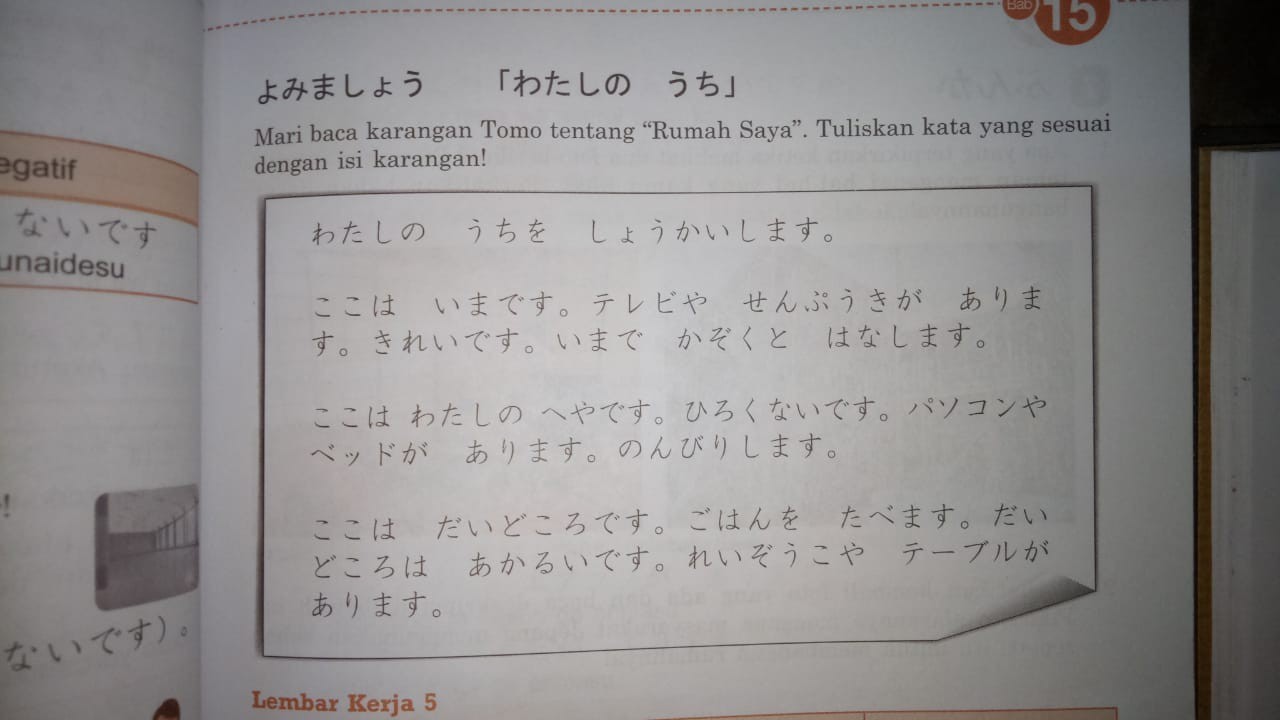 Bab 15
よみましょう 「わたしの うち」
Mari baca karangan Tomo tentang “Rumah Saya”. Tuliskan kata yang sesuai
dengan isi karangan!
わたしの うちを しょうかいします。
ここは いまです。テレビや せんぷうきが ありま
す。きれいです。いまで かぞくと はなします。
ここは わたしの へやです。ひろくないです。パソコンや
ベッドが あります。のんびりします。
ここは だいどころです。ごはんを たべます。だい
どころは あかるいです。れいぞうこや テーブルが
あります。
Lembar Kerja 5
egatif
ないです
unaidesu
!
ないです)。